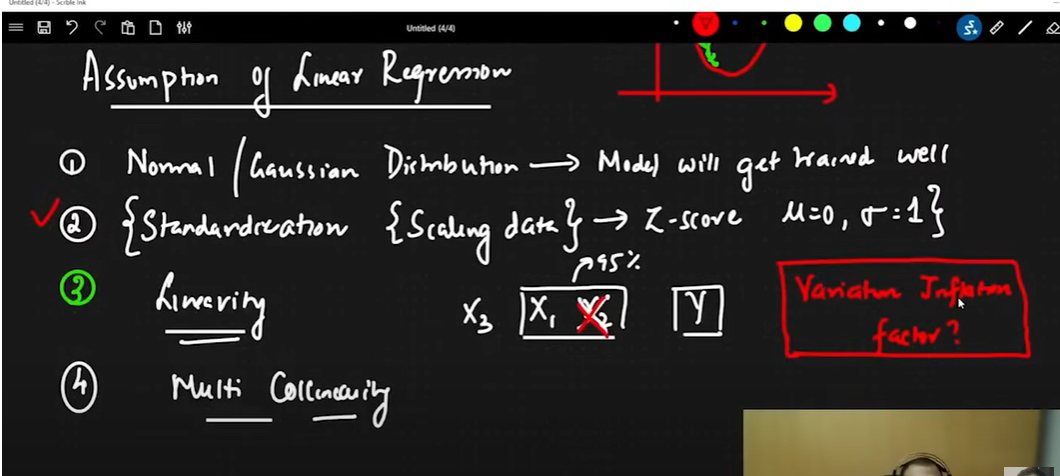 Untitled (4/4) - Scrble Ink
Untitled (4/4)
Assumption of Linear Regression
① Normal / Gaussian Distribution → Model will get trained well
② {Standardization {Scaling data} → Z-score μ=0, σ=1}
↗95%
③ Linearity X₃ X₁ X₂ Y
Variation Inflation
factor?
④ Multi Collinearity